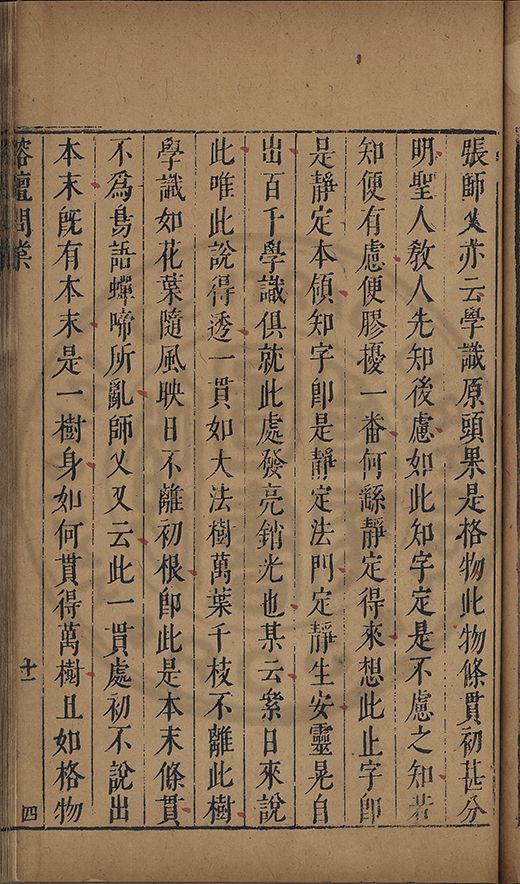 張師乂亦云學識原頭果是格物此物條貫初甚分
明聖人敎人先知後慮如此知字定是不慮之知若
知便有慮便膠擾一番何繇靜定得來想此止字卽
是靜定本領知字卽是靜定法門定靜生安靈晃自
出百千學識俱就此處發亮銷光也某云累日來說
此唯此說得透一貫如大法樹萬葉千枝不離此樹
學識如花葉隨風映日不離初根卽此是本末條貫
不爲鳥語蟬啼所亂師乂又云此一貫處初不說出
本末旣有本末是一樹身如何貫得萬樹且如格物
榕壇問業
十一
四